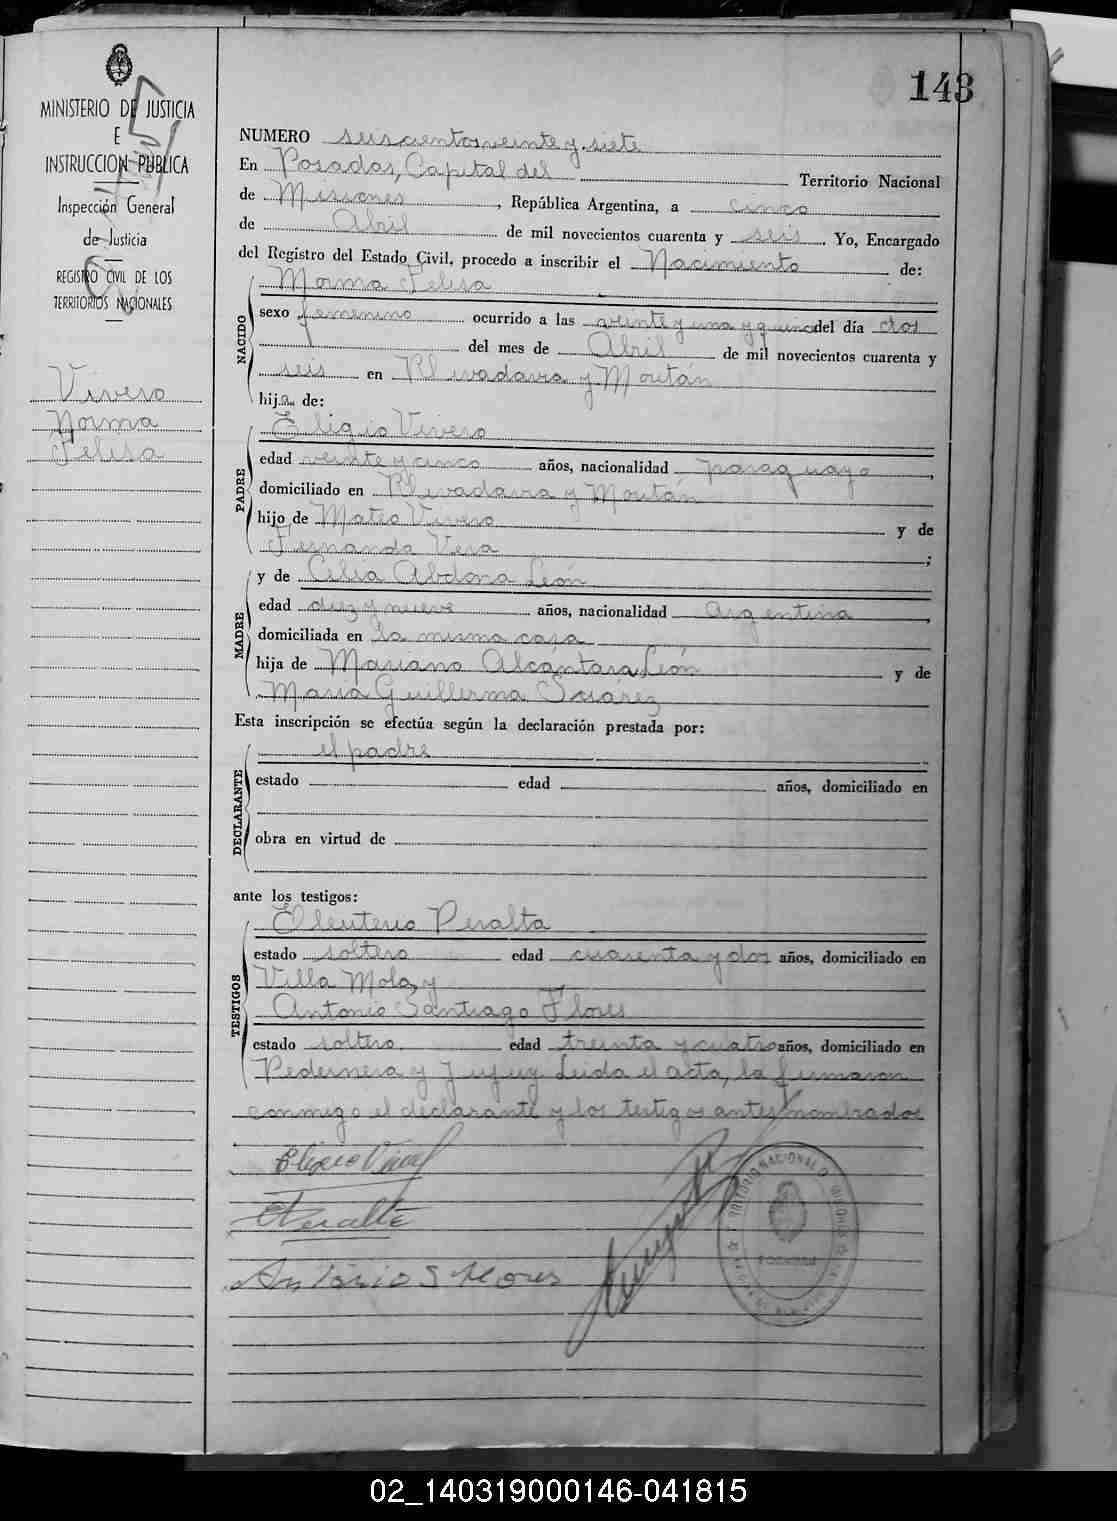 143
MINISTERIO DE JUSTICIA
E
INSTRUCCION PUBLICA
Inspección General
de Justicia
REGISTRO CIVIL DE LOS
TERRITORIOS NACIONALES
Vivero
Norma
Felisa
NUMERO seiscientos veinte y siete
En Posadas, Capital del Territorio Nacional
de Misiones, República Argentina, a cinco
de Abril de mil novecientos cuarenta y seis. Yo, Encargado
del Registro del Estado Civil, procedo a inscribir el Nacimiento de:
NACIDO
Norma Felisa
sexo femenino ocurrido a las veinte y una y quince del día dos
del mes de Abril de mil novecientos cuarenta y
seis en Rivadavia y Moután
hija de:
PADRE
Eligio Vivero
edad veinte y cinco años, nacionalidad paraguayo,
domiciliado en Rivadavia y Moután
hijo de Mateo Vivero y de
Fernanda Vera;
MADRE
y de Celia Abdona León
edad diez y nueve años, nacionalidad Argentina,
domiciliada en la misma casa
hija de Mariano Alcántara León y de
María Guillerma Suárez
Esta inscripción se efectúa según la declaración prestada por:
DECLARANTE
el padre
estado edad años, domiciliado en
obra en virtud de
ante los testigos:
TESTIGOS
Eleuterio Peralta
estado soltero edad cuarenta y dos años, domiciliado en
Villa Mola, y
Antonio Santiago Flores
estado soltero edad treinta y cuatro años, domiciliado en
Pedernera y Jujuy Leida el acta, la firmaron
conmigo el declarante y los testigos antes nombrados
Eligio Vivero
E Peralta
Antonio S Flores
02_140319000146-041815